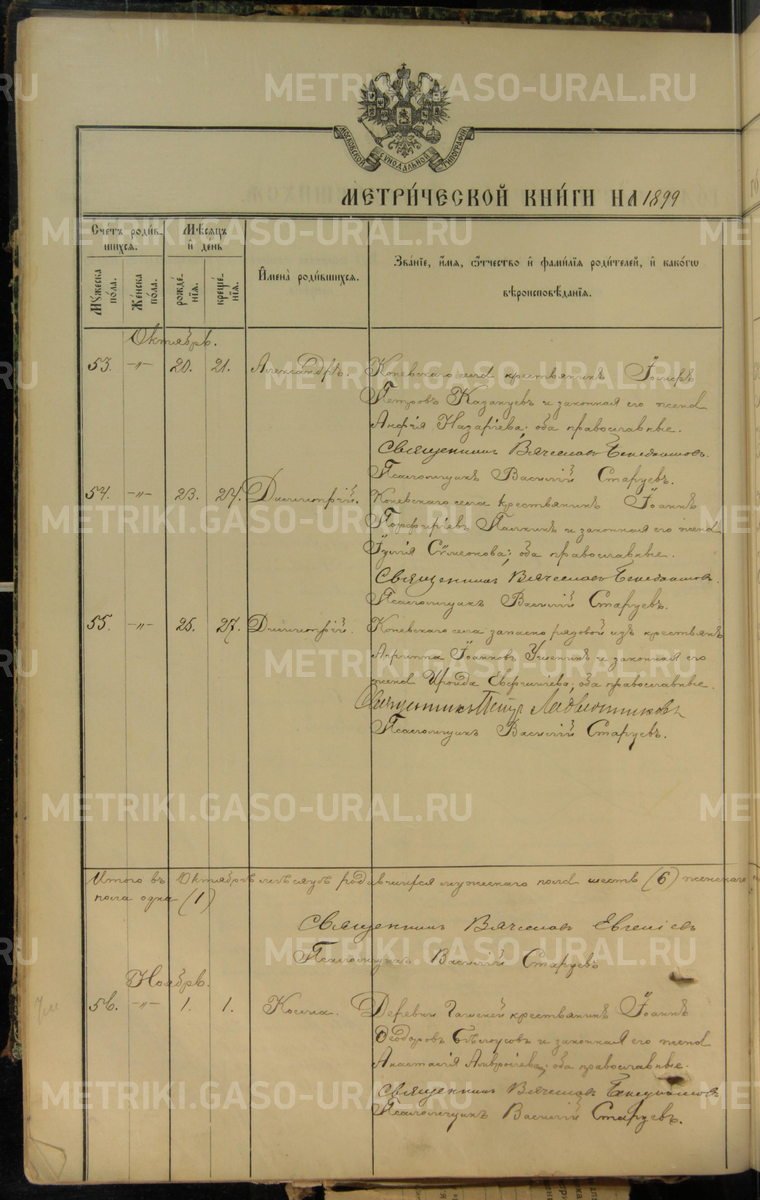 METRIKI.GASO-URAL.RU
МОСКОВСКОЙ СѴНОДАЛЬНОЙ ТИПОГРАФІИ
МЕТРИ́ЧЕСКОЙ КНИ́ГИ НА 1899
Сче́тъ роди́в-шихся.
Мѣ́сяцъ и҆ де́нь
И҆мена̀ роди́вшихся.
Зва́нїе, и҆́мя, ѻ҆́тчество и҆ фами́лїя роди́телей, и҆ како́гѡ вѣроисповѣ́данїя.
Му́жеска по́ла.
Же́нска по́ла.
рожде́-нїя.
креще́-нїя.
Октябрь.
53. -"- 20. 21. Александръ. Коневскаго села крестьянинъ
Петровъ Казанцевъ и законная его жена
Назаріева; оба православные.
Священникъ Вячеславъ
Псаломщикъ Василій Старцевъ.
54. -"- 23. 24. Димитрій. Коневскаго села крестьянинъ Іоаннъ
Порфиріевъ и законная его жена
Сѵмеонова; оба православные.
Священникъ Вячеславъ
Псаломщикъ Василій Старцевъ.
55. -"- 26. 27. Димитрій. Коневскаго села запасно рядовой изъ крестьянъ
Іоанновъ и законная его
жена Ираида оба православные.
Священникъ Петръ
Псаломщикъ Василій Старцевъ.
Итого въ Октябрѣ мѣсяцѣ родившихся мужескаго пола шесть (6) женскаго
пола одна (1)
Священникъ Вячеславъ
Псаломщикъ Василій Старцевъ
Ноябрь.
56. -"- 1. 1. Косма. Деревни крестьянинъ Іоаннъ
Ѳеодоровъ Бѣлоусовъ и законная его жена
Анастасія Амвросіева; оба православные.
Священникъ Вячеславъ
Псаломщикъ Василій Старцевъ.